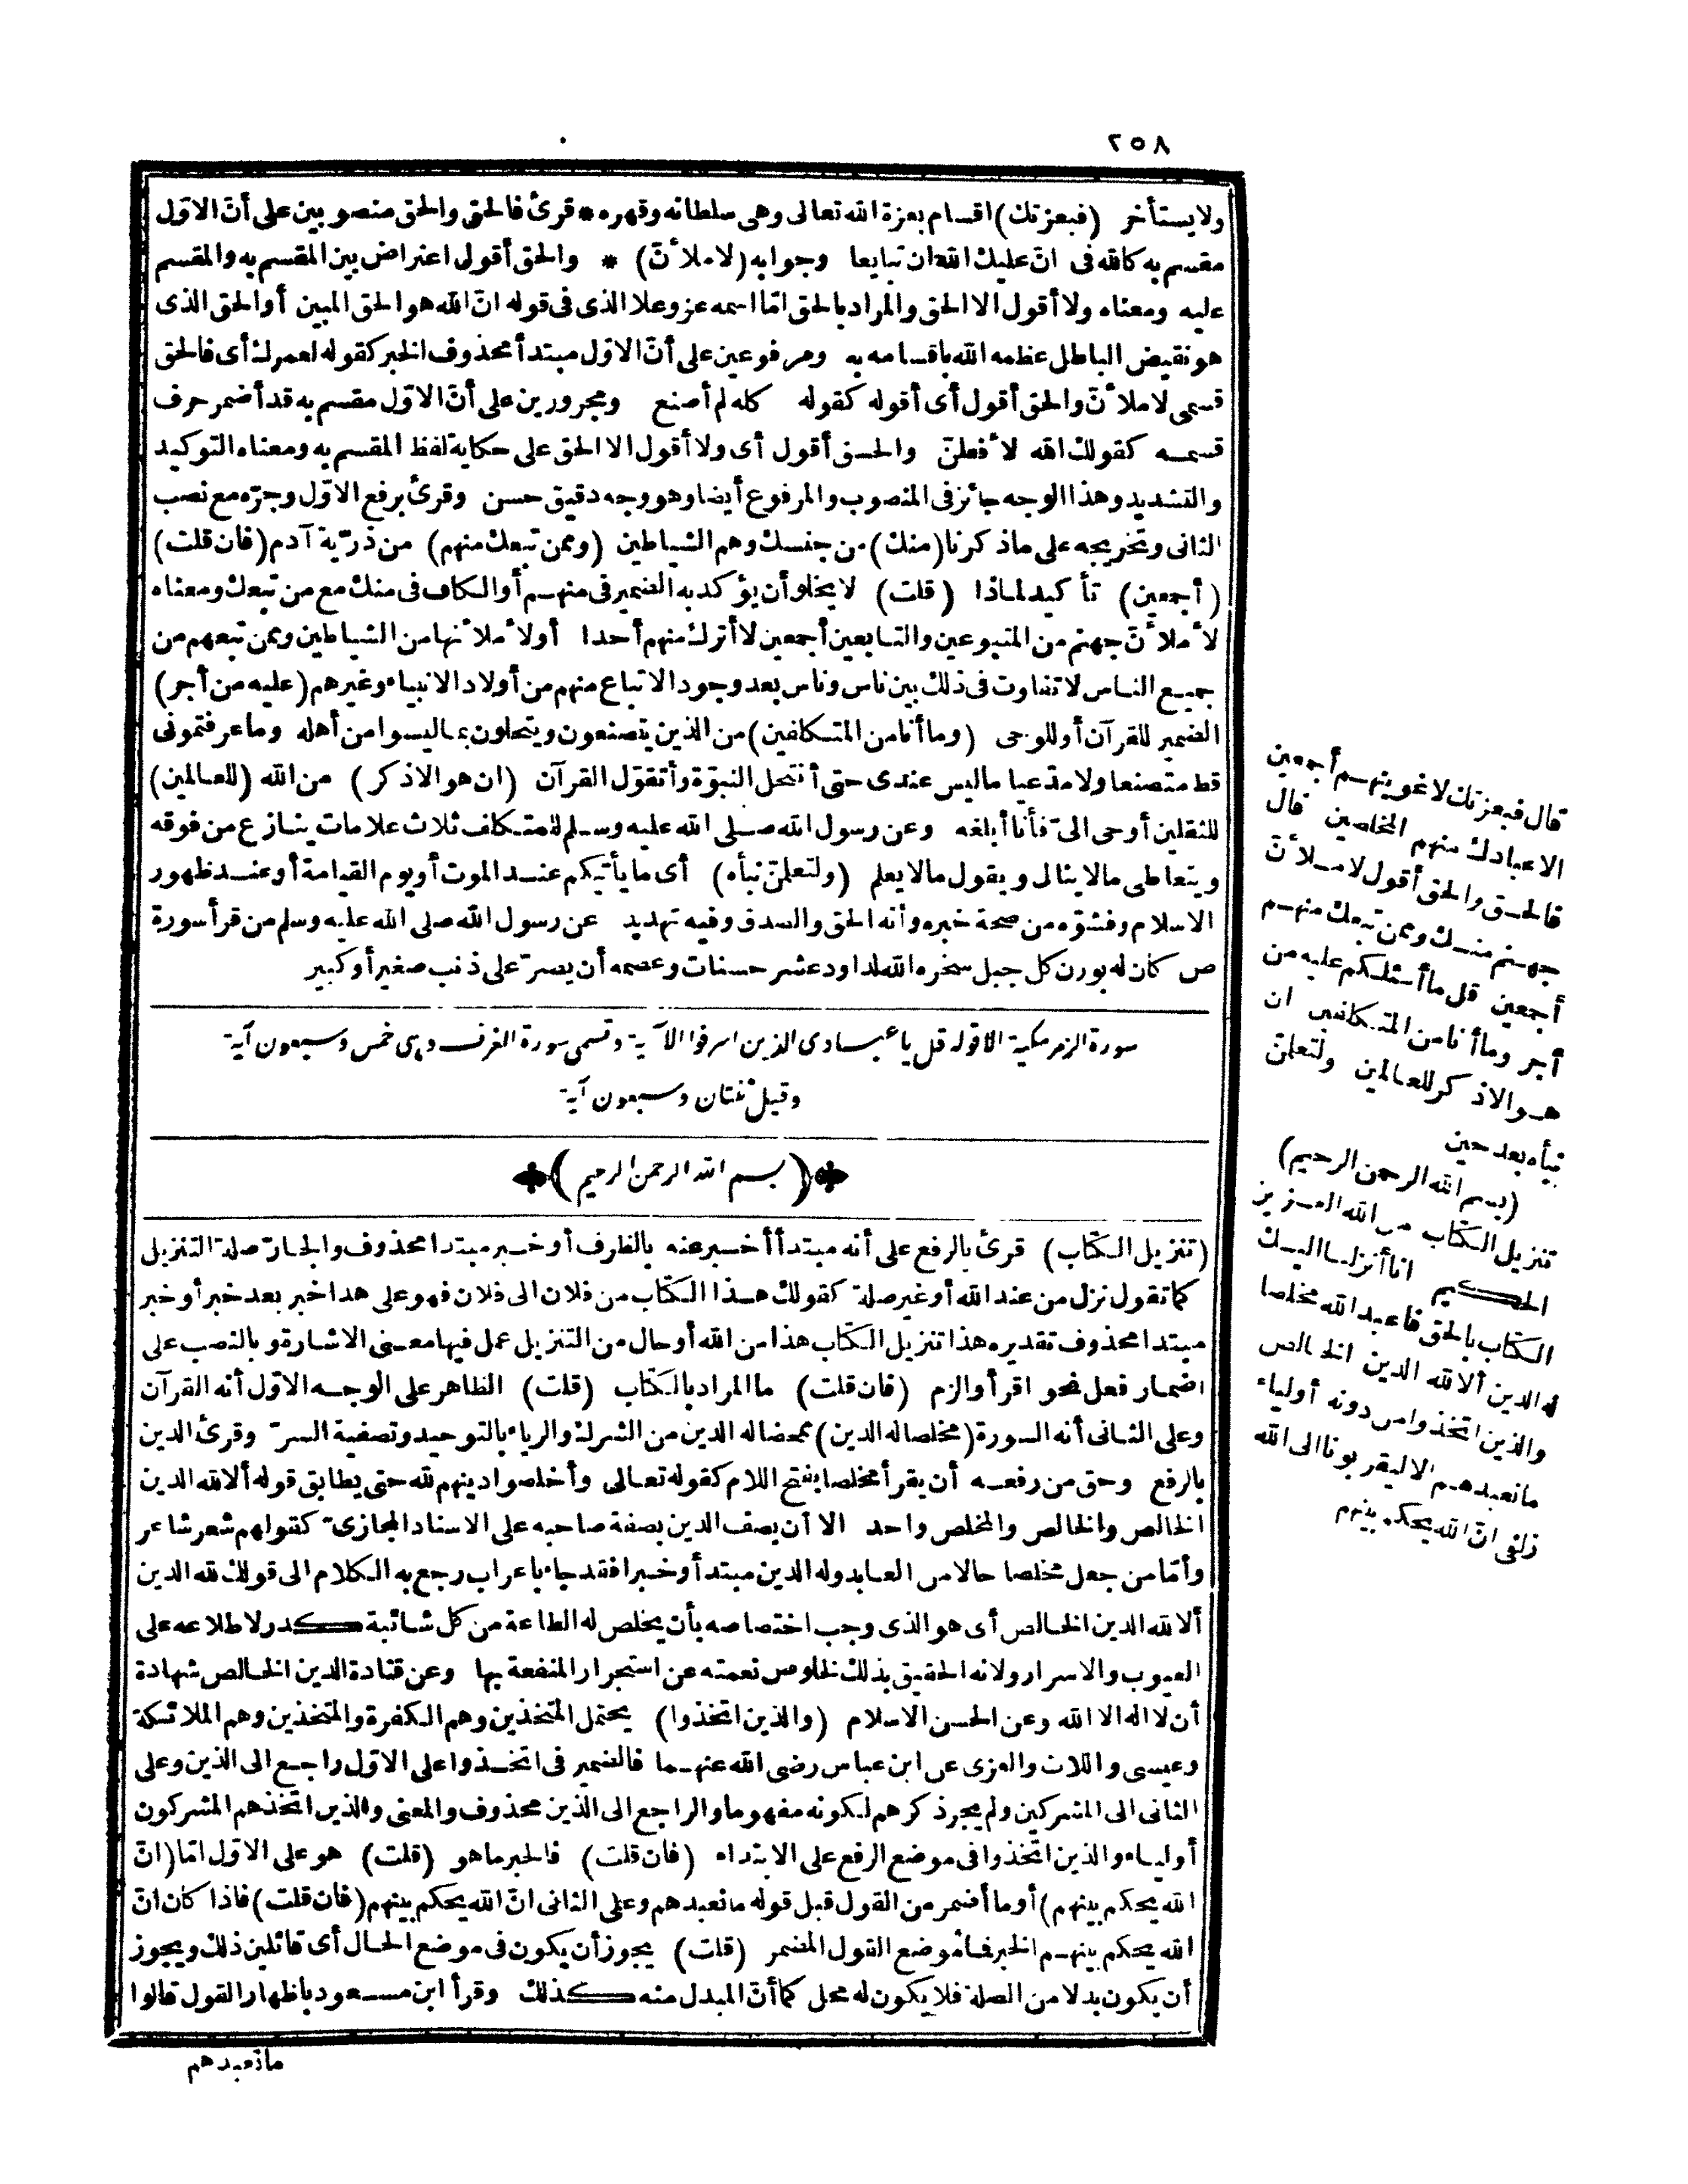 ٢٥٨
ولا يستأخر (فبعزتك) اقسام بعزة الله تعالى وهى سلطانه وقهره * قرئ فالحق والحق منصوبين على أنّ الاوّل
مقسم به كالله فى انّ عليك الله ان تبايعا وجوابه (لاملأنّ) * والحق أقول اعتراض بين المقسم به والمقسم
عليه ومعناه ولا أقول الا الحق والمراد بالحق امّا اسمه عز وعلا الذى فى قوله انّ الله هو الحق المبين أو الحق الذى
هو نقيض الباطل عظمه الله باقسامه به ومرفوعين على أنّ الاوّل مبتدأ محذوف الخبر كقوله لعمرك أى فالحق
قسمى لاملأنّ والحق أقول أى أقوله كقوله كله لم أصنع ومجرورين على أنّ الاوّل مقسم به قد أضمر حرف
قسمه كقولك الله لأفعلنّ والحق أقول أى ولا أقول الا الحق على حكاية لفظ المقسم به ومعناه التوكيد
والتشديد وهذا الوجه جائز فى المنصوب والمرفوع أيضا وهو وجه دقيق حسن وقرئ برفع الاوّل وجرّه مع نصب
الثانى وتخريجه على ماذكرنا (منك) من جنسك وهم الشياطين (وممن تبعك منهم) من ذرّية آدم (فان قلت)
(أجمعين) تأكيد لماذا (قلت) لا يخلو أن يؤكد به الضمير فى منهم أو الكاف فى منك مع من تبعك ومعناه
لأملأنّ جهنم من المتبوعين والتابعين أجمعين لا أترك منهم أحدا أولأملأنها من الشياطين وممن تبعهم من
جميع الناس لا تفاوت فى ذلك بين ناس وناس بعد وجود الاتباع منهم من أولاد الانبياء وغيرهم (عليه من أجر)
الضمير للقرآن أو للوحى (وما أنا من المتكلفين) من الذين يتصنعون ويتحلون بما ليسوا من أهله وماعرفتمونى
قط متصنعا ولا مدّعيا ماليس عندى حتى أنتحل النبوّة وأتقوّل القرآن (ان هو الا ذكر) من الله (للعالمين)
للثقلين أوحى الىّ فأنا أبلغه وعن رسول الله صلى الله عليه وسلم للمتكلف ثلاث علامات ينازع من فوقه
ويتعاطى مالا ينال ويقول مالا يعلم (ولتعلمنّ نبأه) أى ما يأتيكم عند الموت أو يوم القيامة أو عند ظهور
الاسلام وفشوّه من صحة خبره وأنه الحق والصدق وفيه تهديد عن رسول الله صلى الله عليه وسلم من قرأ سورة
ص كان له بوزن كل جبل سخره الله لداود عشر حسنات وعصمه أن يصرّ على ذنب صغير أو كبير
سورة الزمر مكية الا قوله قل يا عبادى الذين اسرفوا الآية وتسمى سورة الغرف وهى خمس وسبعون آية
وقيل ثنتان وسبعون آية
(بسم الله الرحمن الرحيم)
(تنزيل الكتاب) قرئ بالرفع على أنه مبتدأ أخبر عنه بالظرف أو خبر مبتدا محذوف والجارّ صلة التنزيل
كما تقول نزل من عند الله أو غير صلة كقولك هذا الكتاب من فلان الى فلان فهو على هذا خبر بعد خبر أو خبر
مبتدا محذوف تقديره هذا تنزيل الكتاب هذا من الله أو حال من التنزيل عمل فيها معنى الاشارة وبالنصب على
اضمار فعل نحو اقرأ والزم (فان قلت) ما المراد بالكتاب (قلت) الظاهر على الوجه الاوّل أنه القرآن
وعلى الثانى أنه السورة (مخلصا له الدين) ممحضا له الدين من الشرك والرياء بالتوحيد وتصفية السرّ وقرئ الدين
بالرفع وحق من رفعه أن يقرأ مخلصا بفتح اللام كقوله تعالى وأخلصوا دينهم لله حتى يطابق قوله ألا لله الدين
الخالص والخالص والمخلص واحد الا أن يصف الدين بصفة صاحبه على الاسناد المجازىّ كقولهم شعر شاعر
وأمّا من جعل مخلصا حالا من العابد وله الدين مبتدأ وخبرا فقد جاء باعراب رجع به الكلام الى قولك لله الدين
ألا لله الدين الخالص أى هو الذى وجب اختصاصه بأن يخلص له الطاعة من كل شائبة كدر لاطلاعه على
الغيوب والاسرار ولانه الحقيق بذلك لخلوص نعمته عن استجرار المنفعة بها وعن قتادة الدين الخالص شهادة
أن لا اله الا الله وعن الحسن الاسلام (والذين اتخذوا) يحتمل المتخذين وهم الكفرة والمتخذين وهم الملائكة
وعيسى واللات والعزى عن ابن عباس رضى الله عنهما فالضمير فى اتخذوا على الاوّل راجع الى الذين وعلى
الثانى الى المشركين ولم يجر ذكرهم لكونه مفهوما والراجع الى الذين محذوف والمعنى والذين اتخذهم المشركون
أولياء والذين اتخذوا فى موضع الرفع على الابتداء (فان قلت) فالخبر ما هو (قلت) هو على الاوّل امّا (انّ
الله يحكم بينهم) أو ما أضمر من القول قبل قوله ما نعبدهم وعلى الثانى انّ الله يحكم بينهم (فان قلت) فاذا كان انّ
الله يحكم بينهم الخبر فما موضع القول المضمر (قلت) يجوز أن يكون فى موضع الحال أى قائلين ذلك ويجوز
أن يكون بدلا من الصلة فلا يكون له محل كما أنّ المبدل منه كذلك وقرأ ابن مسعود باظهار القول قالوا
ما نعبدهم
قال فبعزتك لاغوينهم أجمعين
الا عبادك منهم المخلصين قال
فالحق والحق أقول لاملأنّ
جهنم منك وممن تبعك منهم
أجمعين قل ما أسئلكم عليه من
أجر وما أنا من المتكلفين ان
هو الا ذكر للعالمين ولتعلمنّ
نبأه بعد حين
(بسم الله الرحمن الرحيم)
تنزيل الكتاب من الله العزيز
الحكيم انا أنزلنا اليك
الكتاب بالحق فاعبد الله مخلصا
له الدين ألا لله الدين الخالص
والذين اتخذوا من دونه أولياء
ما نعبدهم الا ليقربونا الى الله
زلفى انّ الله يحكم بينهم